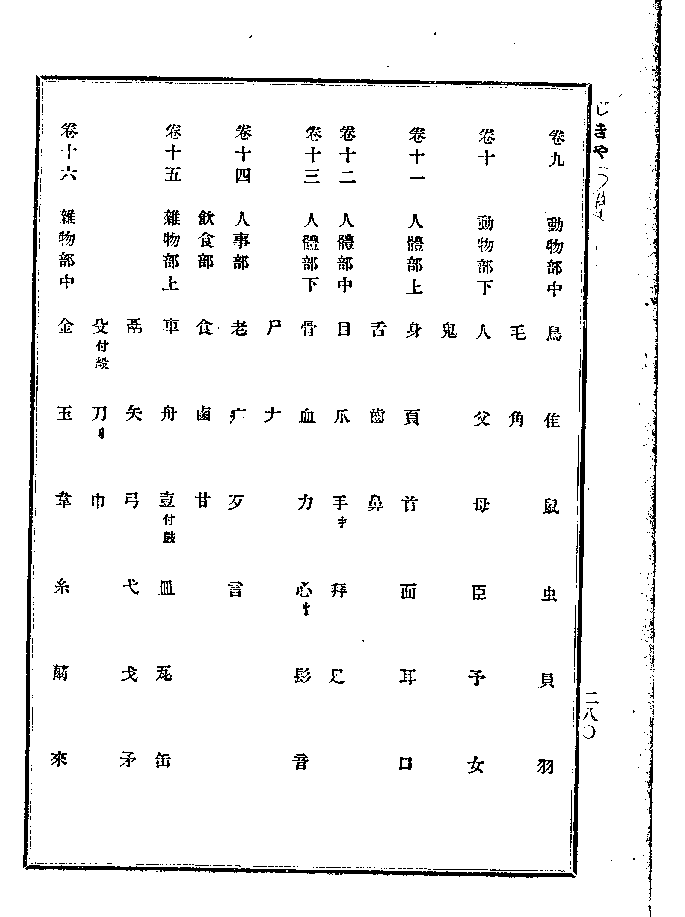 二八〇
卷九 動物部中 鳥 隹 鼠 虫 貝 羽
毛 角
卷十 動物部下 人 父 母 臣 予 女
鬼
卷十一 人體部上 身 頁 首 面 耳 口
舌 齒 鼻
卷十二 人體部中 目 爪 手扌 拜 足
卷十三 人體部下 骨 血 力 心忄 髟
尸
卷十四 人事部 老 疒 歹 言
飮食部 食 鹵 甘
卷十五 雜物部上 車 舟 壴付鼓 皿 瓦 缶
鬲 矢 弓 弋 戈 矛
殳付 刀刂 巾
卷十六 雜物部中 金 玉 韋 糸 來